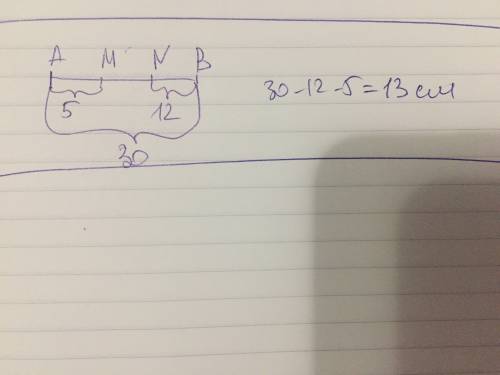 A M N B
30-12-5=13 см
5 12
30